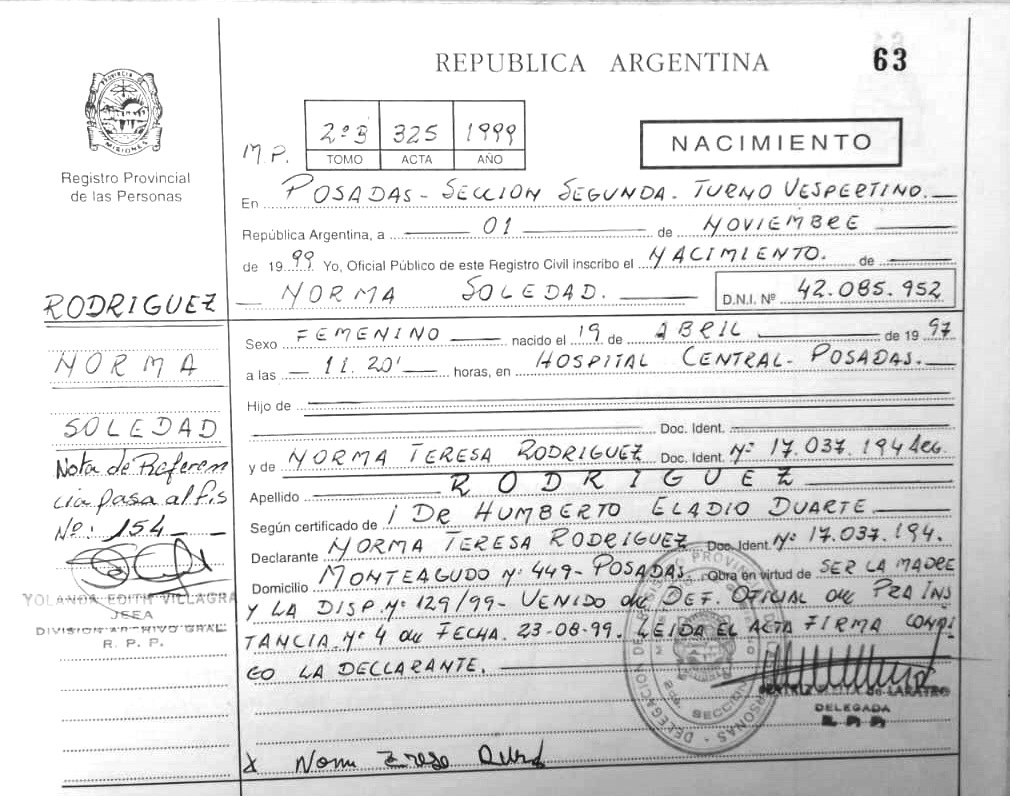 REPUBLICA ARGENTINA
63
PROVINCIA DE
MISIONES
Registro Provincial
de las Personas
M.P.
2º B 325 1999
TOMO ACTA AÑO
NACIMIENTO
En POSADAS - SECCION SEGUNDA. TURNO VESPERTINO.
República Argentina, a 01 de NOVIEMBRE
de 19 99 Yo, Oficial Público de este Registro Civil inscribo el NACIMIENTO. de
NORMA SOLEDAD. D.N.I. Nº 42.085.952
RODRIGUEZ
NORMA
SOLEDAD
Nota de Referen
cia pasa al fis
Nº: 154
YOLANDA EDITH VILLAGRA
JEFA
DIVISION ARCHIVO GRAL.
R. P. P.
Sexo FEMENINO nacido el 19 de ABRIL de 19 97
a las 11.20' horas, en HOSPITAL CENTRAL - POSADAS.
Hijo de
Doc. Ident.
y de NORMA TERESA RODRIGUEZ Doc. Ident. Nº 17.037.194 ARG.
Apellido RODRIGUEZ
Según certificado de DR HUMBERTO ELADIO DUARTE
Declarante NORMA TERESA RODRIGUEZ Doc. Ident. Nº 17.037.194.
Domicilio MONTEAGUDO Nº 449 - POSADAS. Obra en virtud de SER LA MADRE
Y LA DISP. Nº 129/99 - VENIDO de DEF. OFICIAL de PRA INS
TANCIA. Nº 4 de FECHA. 23-08-99. LEIDA EL ACTA FIRMA CONMI
GO LA DECLARANTE.
DELEGADA
X